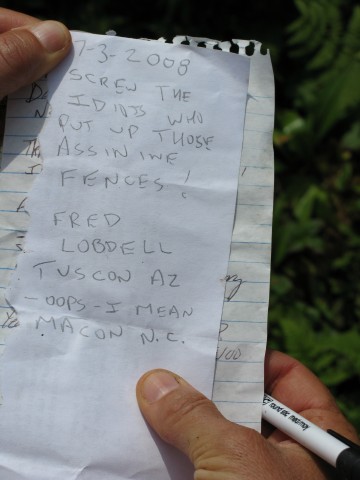 7-3-2008
SCREW THE
IDIOTS WHO
PUT UP THOSE
ASSININE
FENCES!
FRED
LOBDELL
TUSCON AZ
-OOPS-I MEAN
MACON N.C.